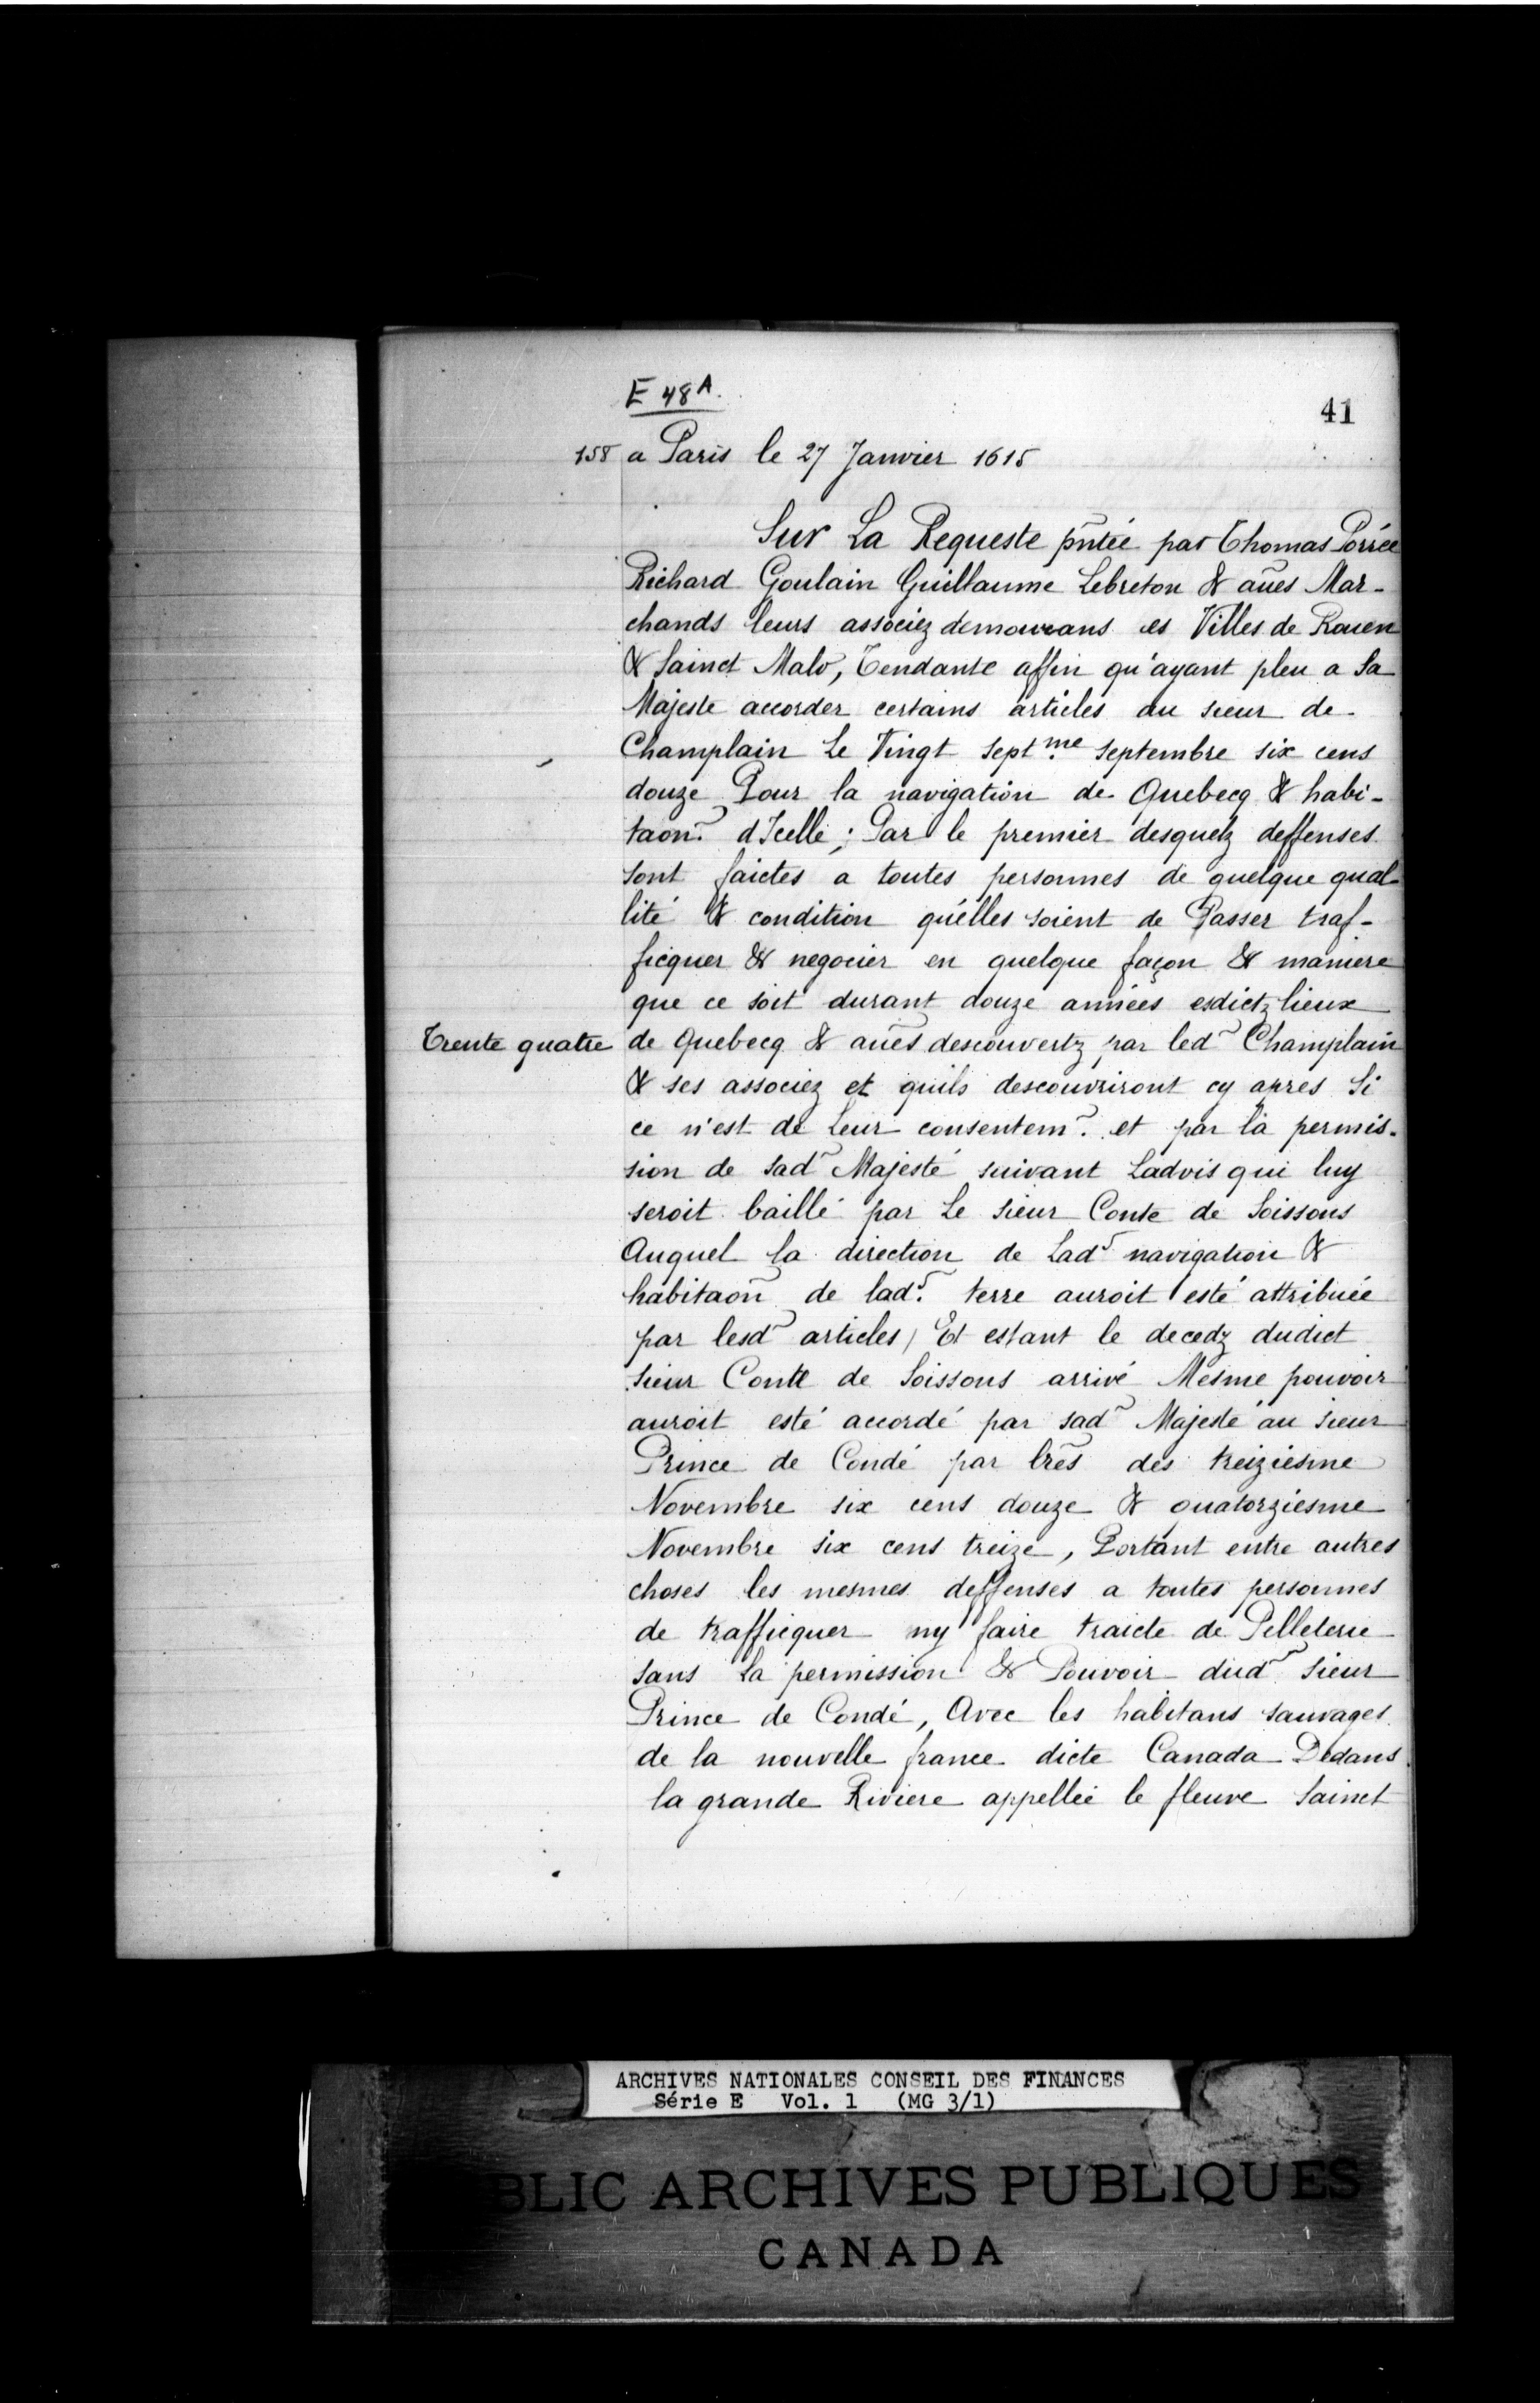 E 48 A.
41
158 a Paris le 27 Janvier 1615
Sur La Requeste pñtée par Thomas Porrée
Richard Goulain Guillaume Lebreton & aũes Mar-
chands leurs associez demourans es Villes de Rouen
& Sainct Malo, Tendante affin qu'ayant pleu a Sa
Majeste accorder certains articles au sieur de
Champlain Le Vingt sept.me septembre six cens
douze Pour la navigation de Quebecq & habi-
taon~. d'Icelle ; Par le premier desquelz deffenses
sont faictes a toutes personnes de quelque qual-
lité & condition qu'elles soient de Passer traf-
ficquer & negocier en quelque façon & maniere
que ce soit durant douze années esdictz lieux
Trente quatre de Quebecq & aũes descouvertz par led~ Champlain
& ses associez et quils descouvriront cy apres Si
ce n'est de Leur consentem~. et par la permis-
sion de sad~ Majesté suivant Ladvis qui luy
seroit baillé par Le sieur Conte de Soissons
Auquel la direction de Lad~ navigation &
habitaon~ de lad~. terre auroit esté attribuée
par lesd~ articles / Et estant le decedz dudict
sieur Conte de Soissons arrivé Mesme pouvoir
auroit esté accordé par sad~ Majesté au sieur
Prince de Condé par lr̃es des treiziesme
Novembre six cens douze & quatorziesme
Novembre six cens treize, Portant entre autres
choses les mesmes deffenses a toutes personnes
de trafficquer ny faire traicte de Pelleterie
sans La permission & Pouvoir dud~ sieur
Prince de Condé, Avec les habitans sauvages
de la nouvelle france dicte Canada Dedans
la grande Riviere appellée le fleuve Sainct
ARCHIVES NATIONALES CONSEIL DES FINANCES
Série E Vol. 1 (MG 3/1)
BLIC ARCHIVES PUBLIQUES
CANADA